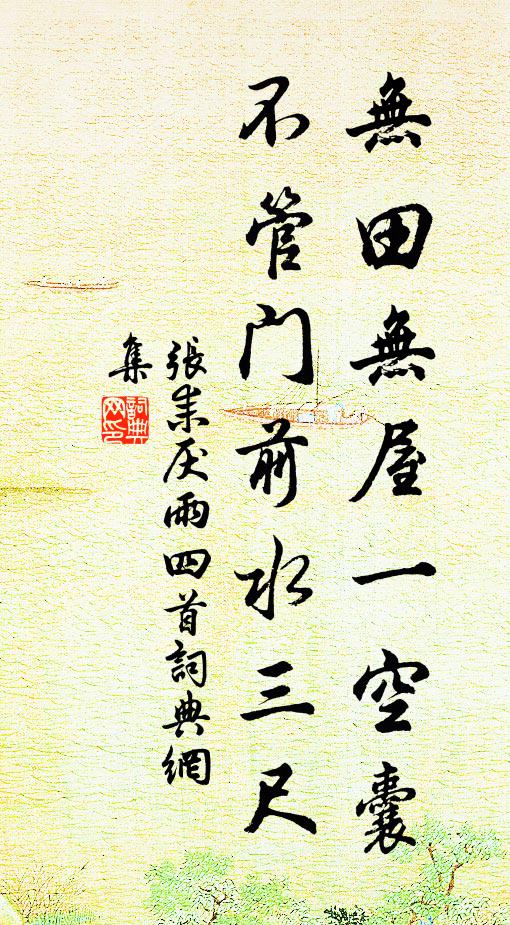 無田無屋一空囊
不管門前水三尺
張耒厌雨四首詞典網
集
詞典
网印